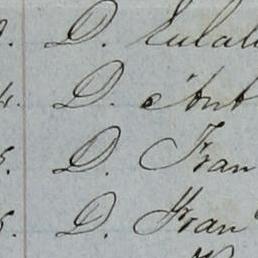 D. Eulali
4. D. Ant
5. D. Fran
5. D. Fran